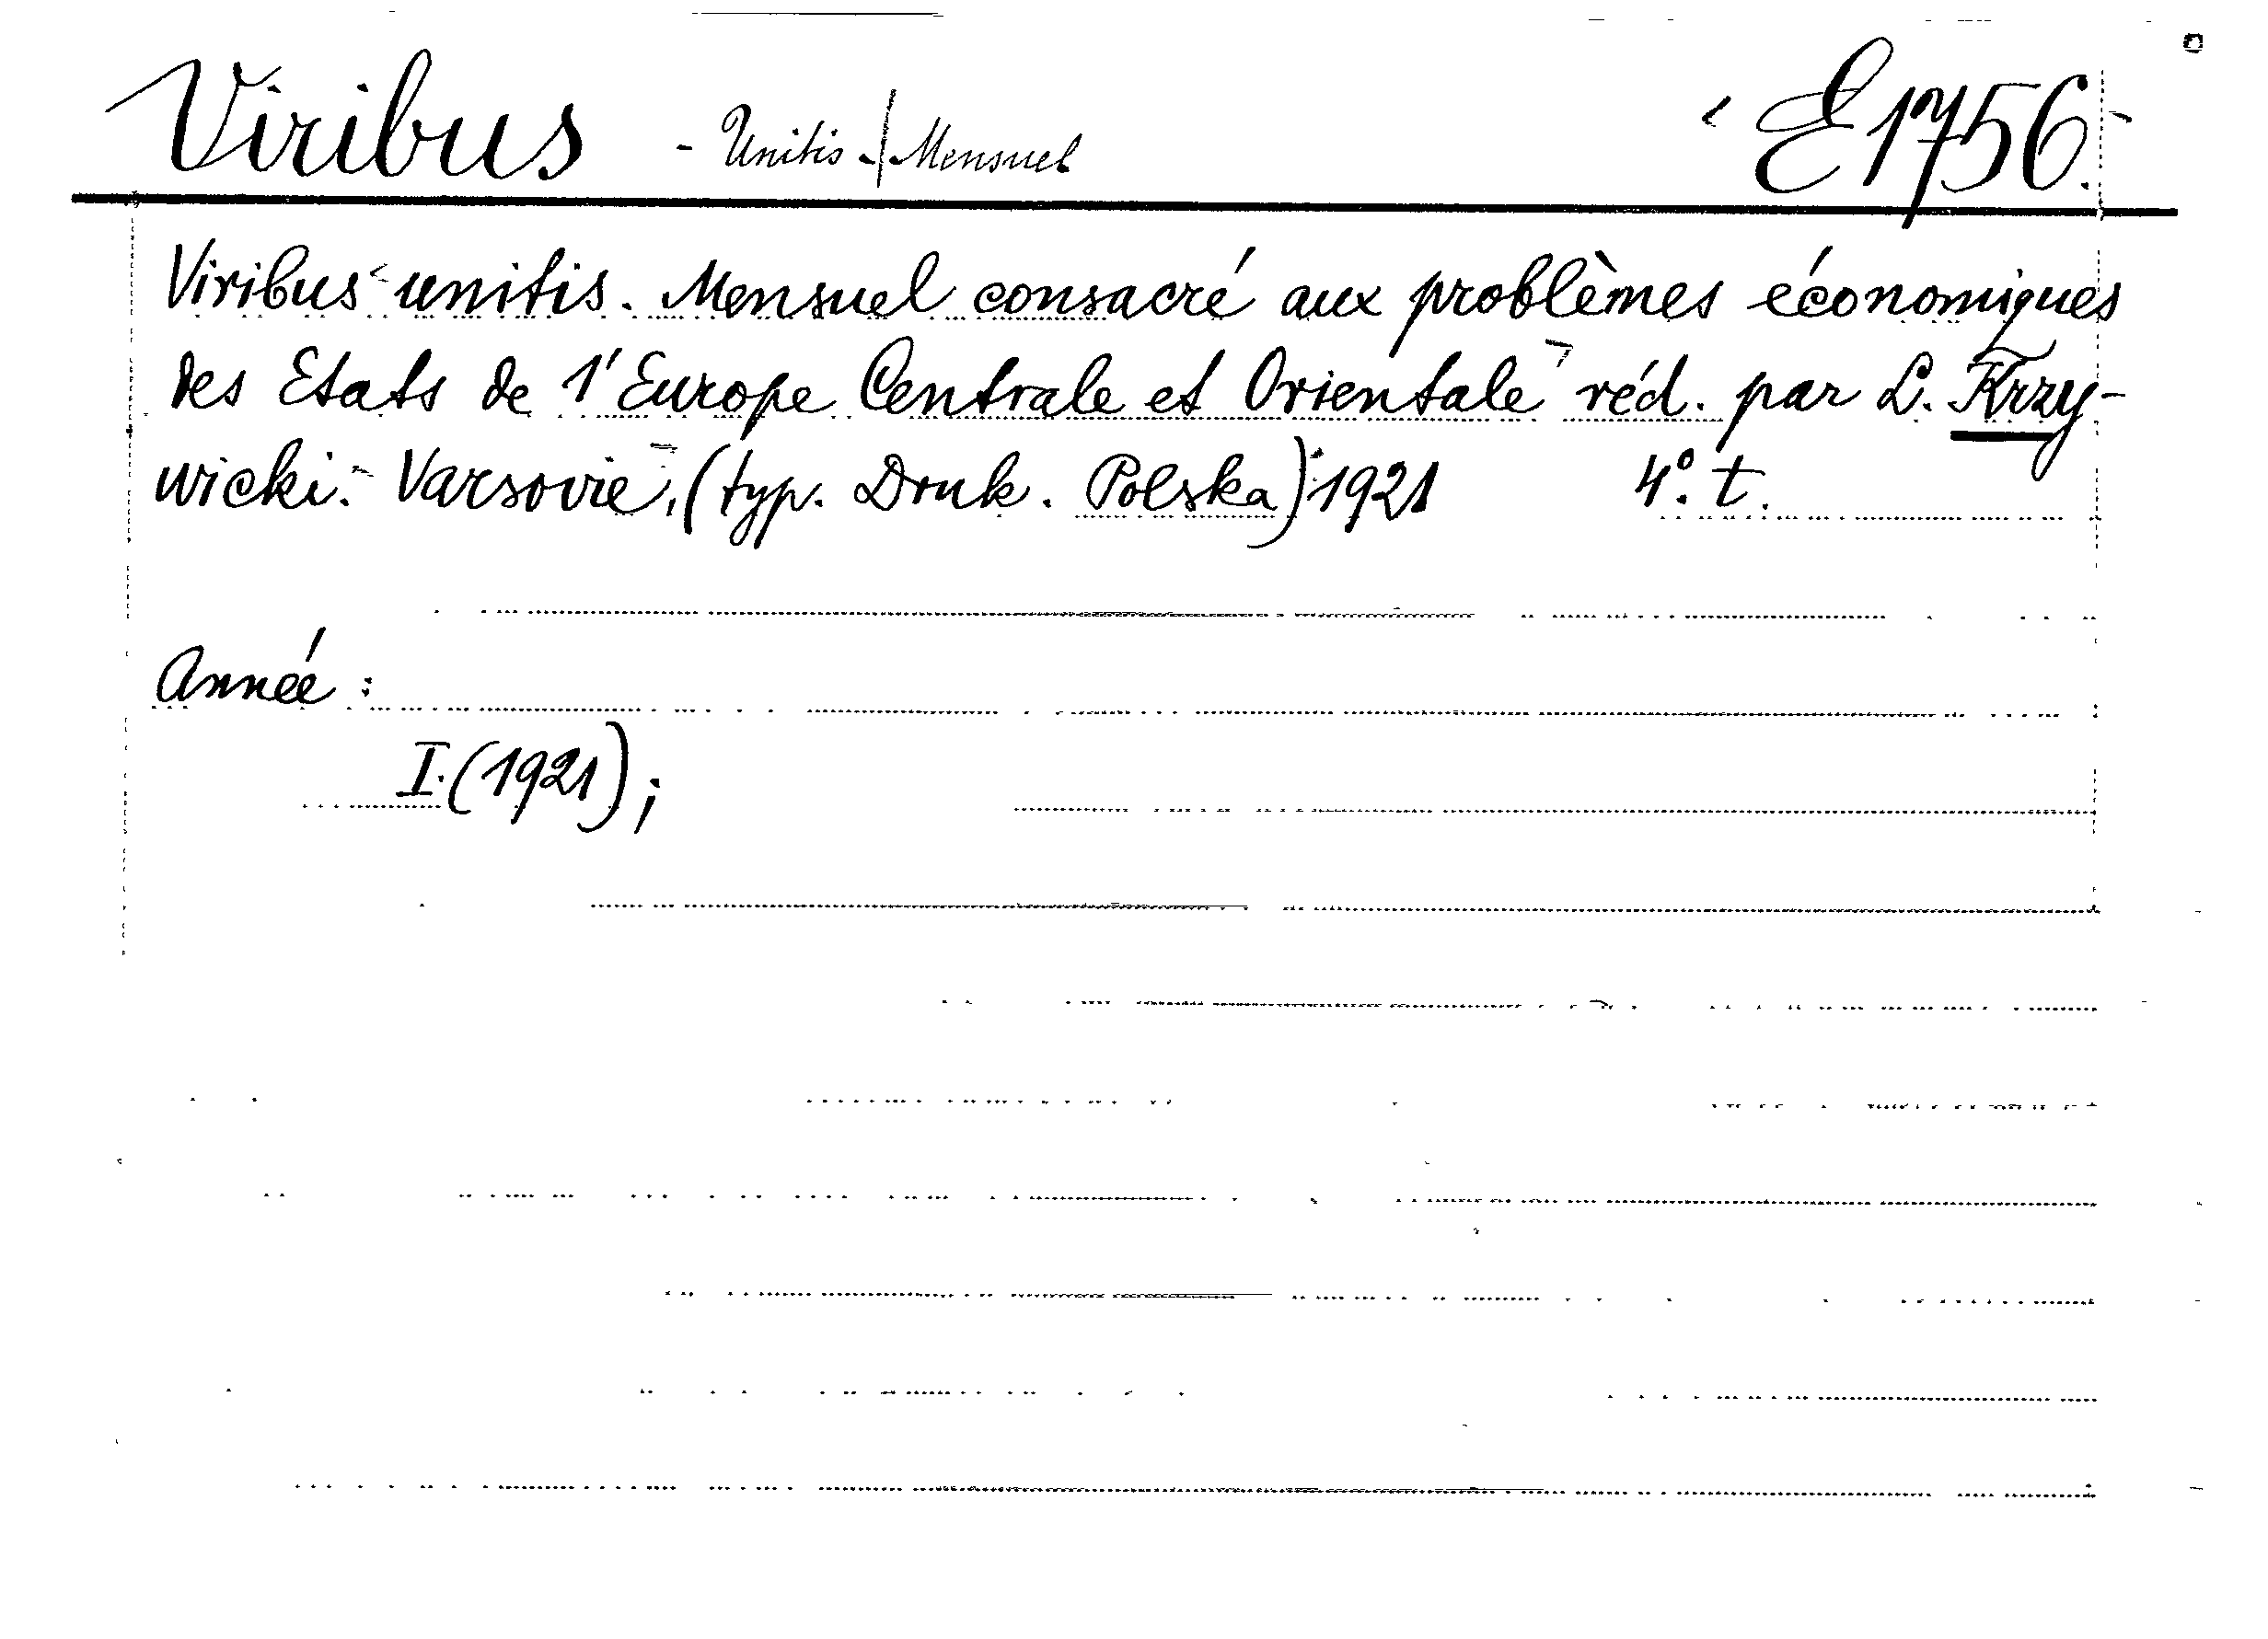 Viribus - Unitis - / Mensuel E1756.
Viribus unitis. Mensuel consacré aux problèmes économiques
des Etats de l'Europe Centrale et Orientale réd. par L. Krzy-
wicki. Varsovie, (typ. Druk. Polska) 1921 4º. t.
Année :
I. (1921);